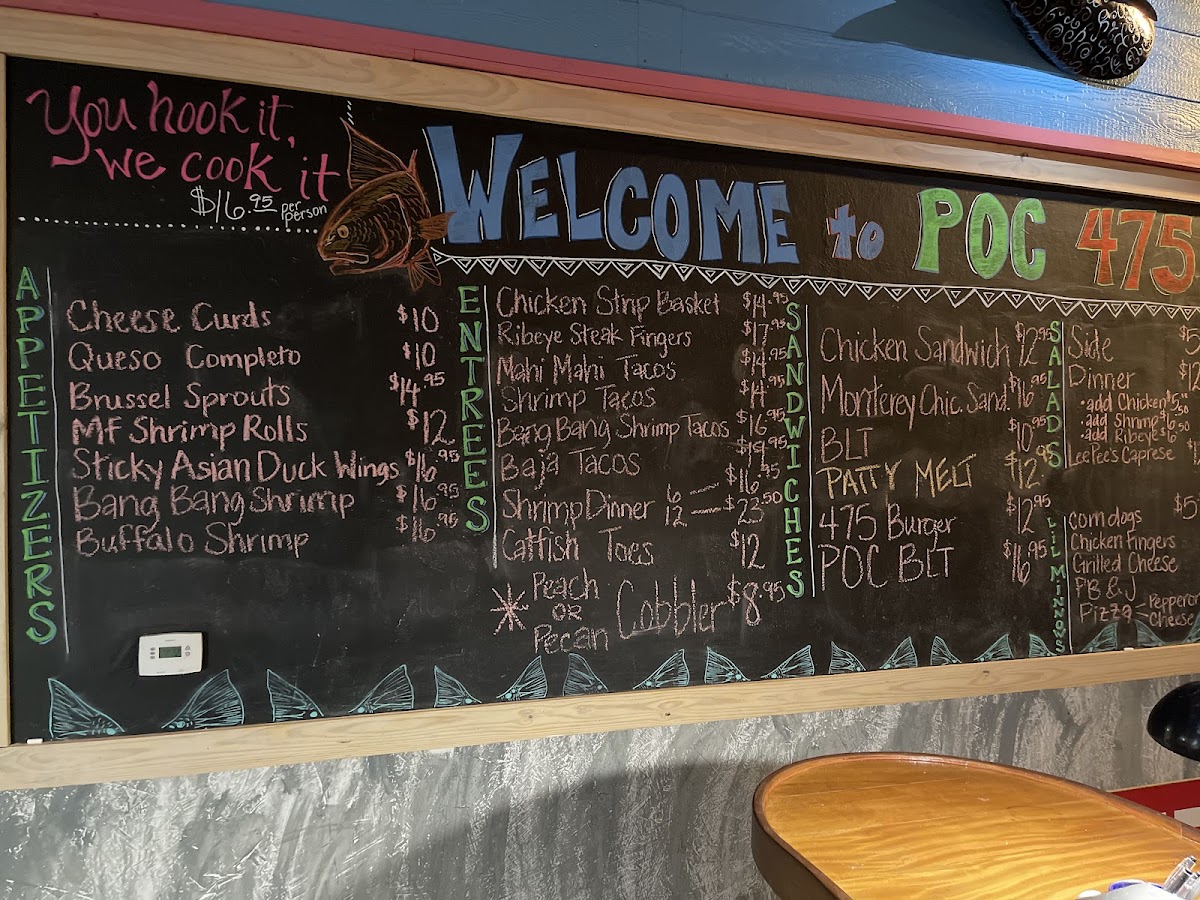 You hook it,
we cook it
$16.95 per person
WELCOME to POC 475
APPETIZERS
Cheese Curds $10
Queso Completo $10
Brussel Sprouts $14.95
MF Shrimp Rolls $12
Sticky Asian Duck Wings $16.95
Bang Bang Shrimp $16.95
Buffalo Shrimp $16.95
ENTREES
Chicken Strip Basket $14.95
Ribeye Steak Fingers $17.95
Mahi Mahi Tacos $14.95
Shrimp Tacos $14
Bang Bang Shrimp Tacos $16.95
Baja Tacos
Shrimp Dinner 6 $16.95
12 $23.50
Catfish Toes $12
Peach
or
Pecan
Cobbler $8.95
SANDWICHES
Chicken Sandwich $12.95
Monterey Chic. Sand. $16.95
BLT $10.95
PATTY MELT $12.95
475 Burger $12.95
POC BLT $16.95
SALADS
Side $5
Dinner $12
• add Chicken
• add Shrimp $6.50
• add Ribeye $6
LeePee's Caprese
LIL MINNOWS
Corndogs $5
Chicken Fingers
Grilled Cheese
PB & J
Pizza
Cheese